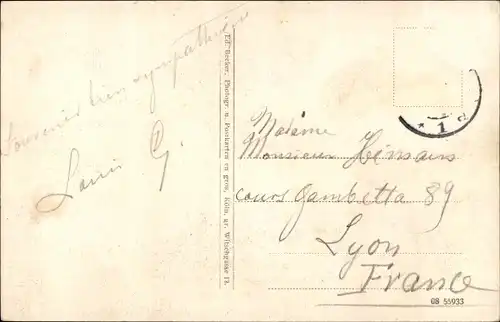 Souvenir bien sympathique
Louis G.
Ed. Becker, Photogr. u. Postkarten en gros, Köln, gr. Witschgasse 11.
1 d
Madame
Monsieur
cours Gambetta 89
Lyon
France
GB 55933